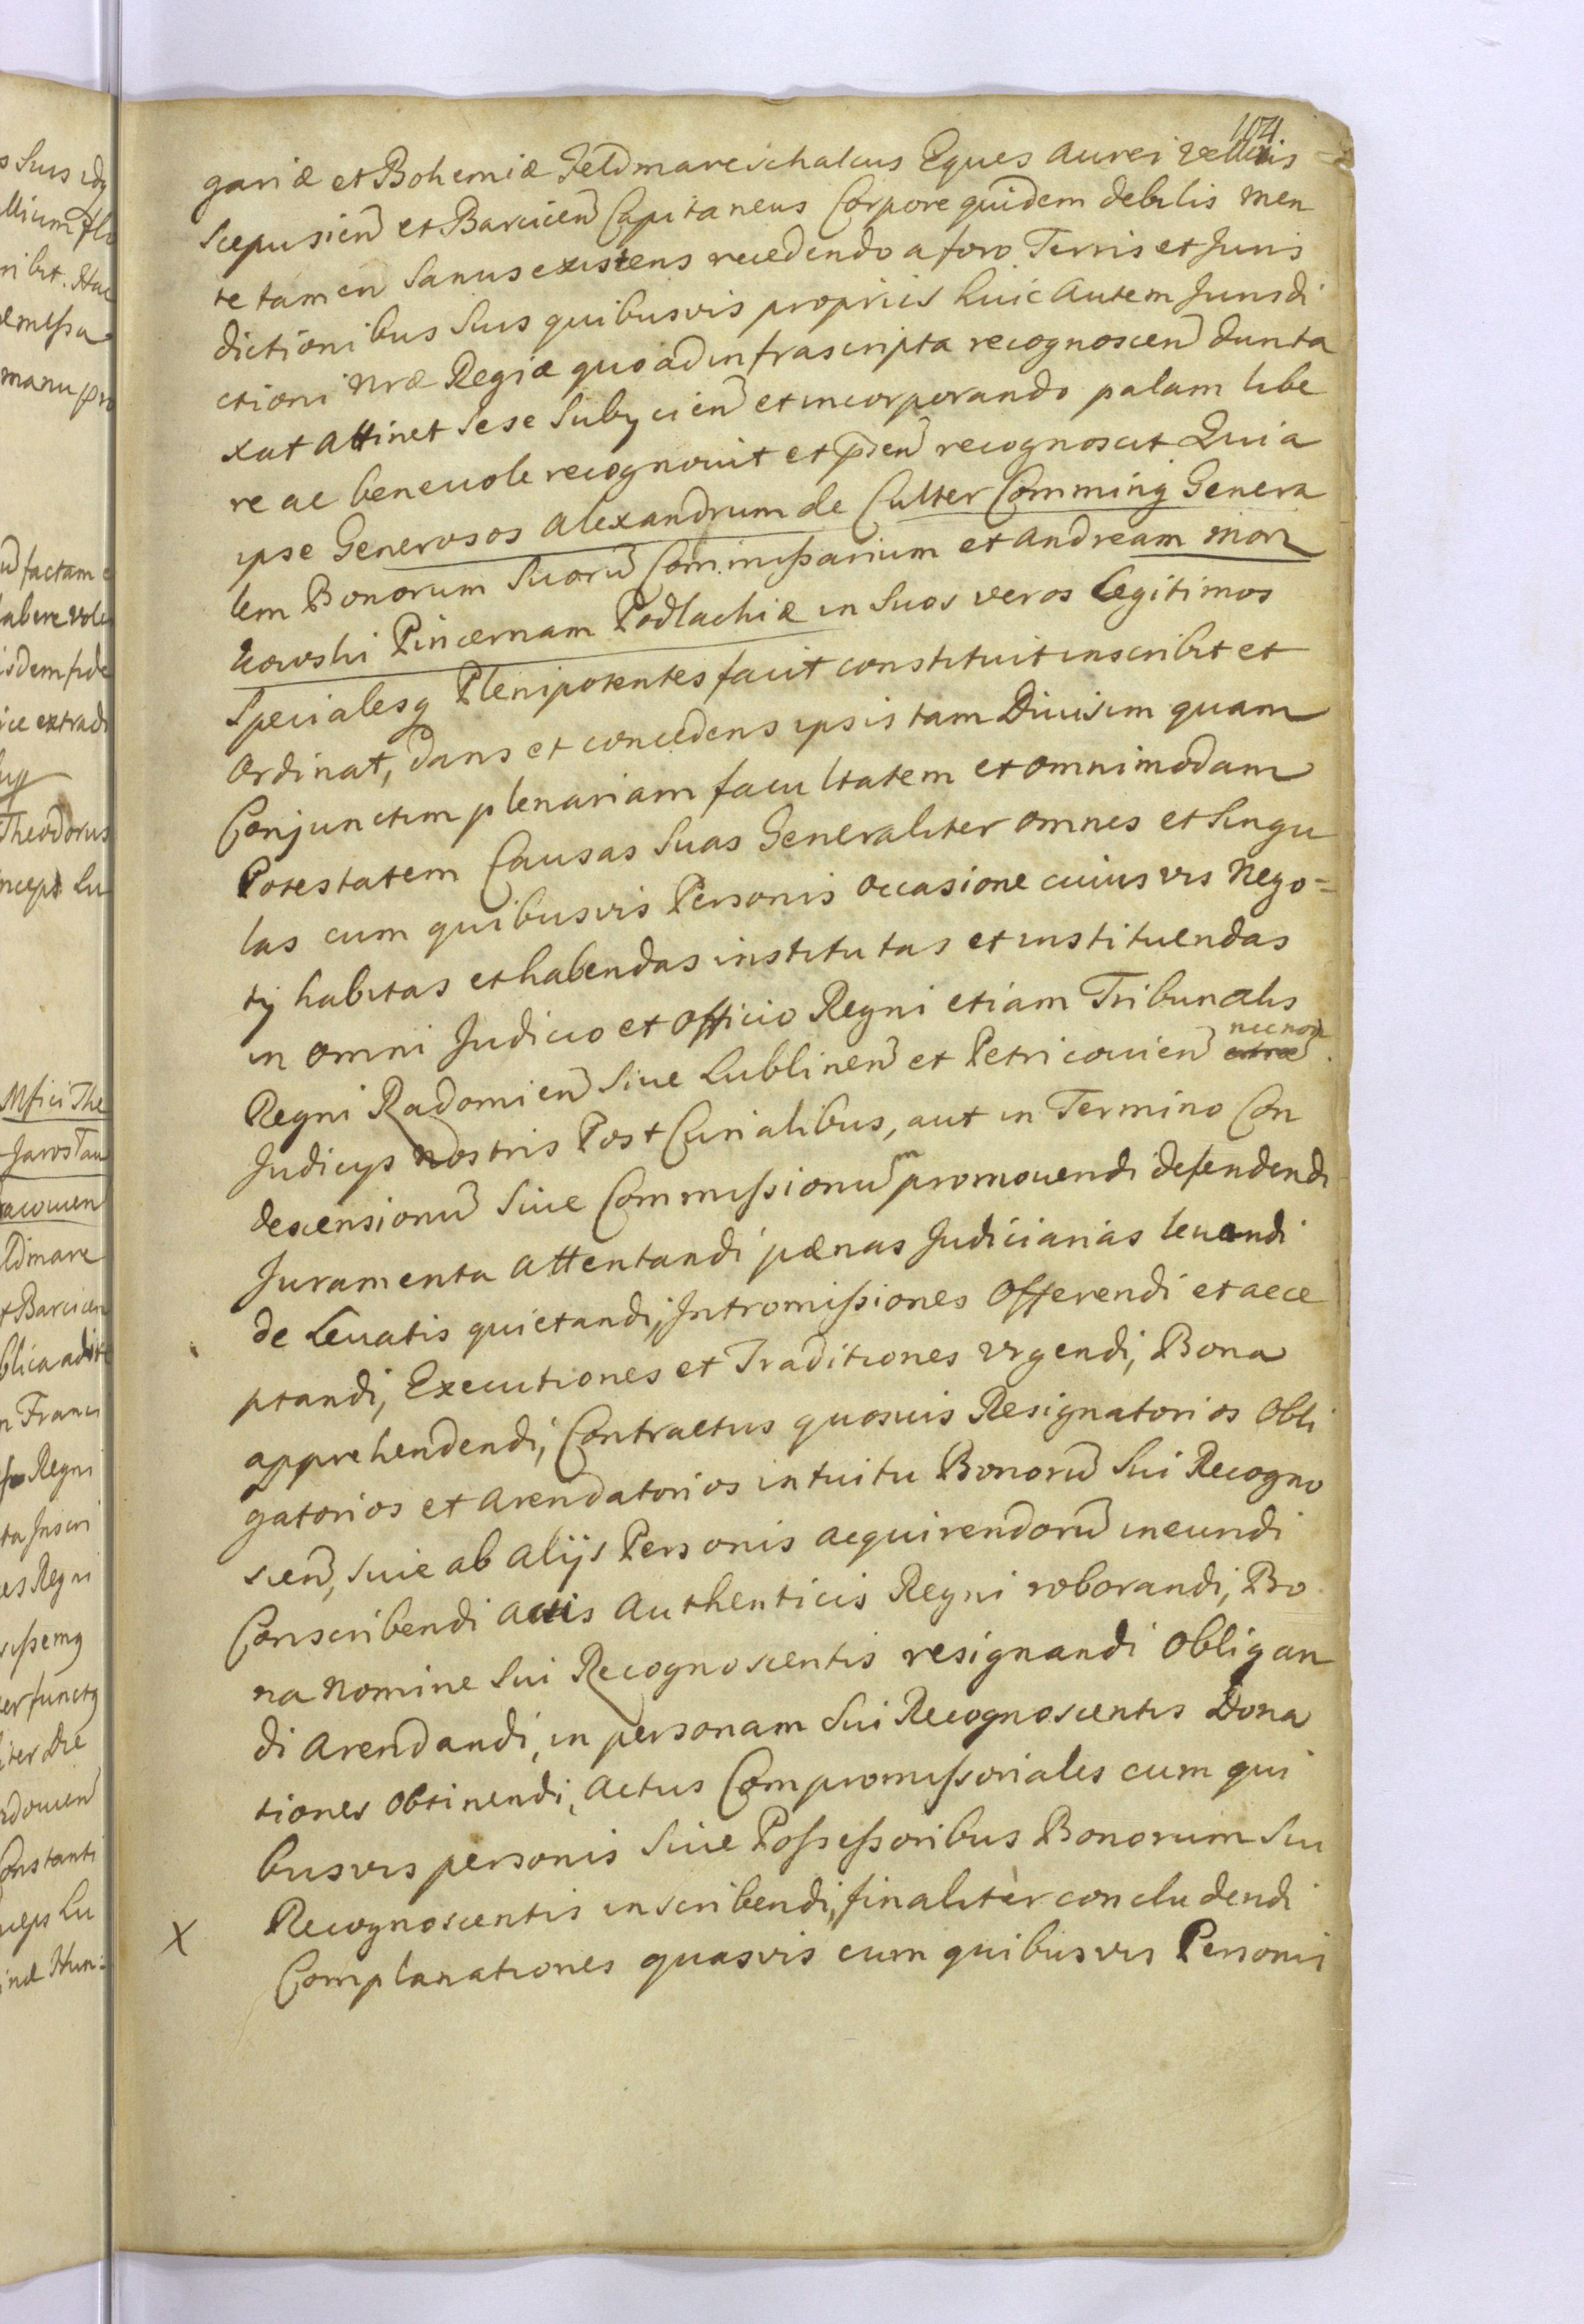 104
gariæ et Bohemiæ Feldmareschalcus Eques Aurei Velleris
Scepusien̄ et Barcicen̄ Capitaneus Corpore quidem debilis men
te tamen Sanus existens recedendo a foro Terris et Juris
dictionibus Suis quibusvis propriis huic autem Jurisdi
ctioni Nræ Regiæ quo ad infrascripta recognoscen̄ dunta
xat attinet sese Subÿcien̄ et incorporando palam libe
re ac benevole recognovit et p̄sen̄ recognoscit Quia
ipse Generosos Alexandrum de Culter Comming Genera
lem Bonorum Suorū Commissarium et Andream Mor
kowski Pincernam Podlachiæ in Suos veros legitimos
Specialesq Plenipotentes facit constituit inscribit et
Ordinat, Dans et concedens ipsis tam Divisim quam
Conjunctim plenariam facultatem et omnimodam
Potestatem Causas Suas Generaliter omnes et Singu
las cum quibusvis Personis occasione cuiusvis Nego=
tÿ habitas et habendas institutas et instituendas
in omni Judicio et Officio Regni etiam Tribunalis
Regni Radomien̄ Sive Lublinen̄ et Petricovien̄ nec non
Judicÿs Nostris Post Curialibus, aut in Termino Con
descensionū Sive Commissionū promovendi defendendi
Juramenta attentandi pænas Judiciarias levandi
de Levatis quietandi, Intromissiones Offerendi et acce
ptandi, Executiones et Traditiones urgendi, Bona
apprehendendi, Contractus quosvis Resignatorios Obli
gatorios et Arendatorios intuitu Bonorū Sui Recogno
scen̄, sive ab Alÿs Personis acquirendorū ineundi
Conscribendi Actis Authenticis Regni roborandi, Bo
na Nomine Sui Recognoscentis resignandi Obligan
di Arendandi, in personam Sui Recognoscentis Dona
tiones Obtinendi, Actus Compromissoriales cum qui
busvis personis Sive Possessoribus Bonorum Sui
X Recognoscentis inscribendi, finaliter concludendi
Complanationes quasvis cum quibusvis Personis